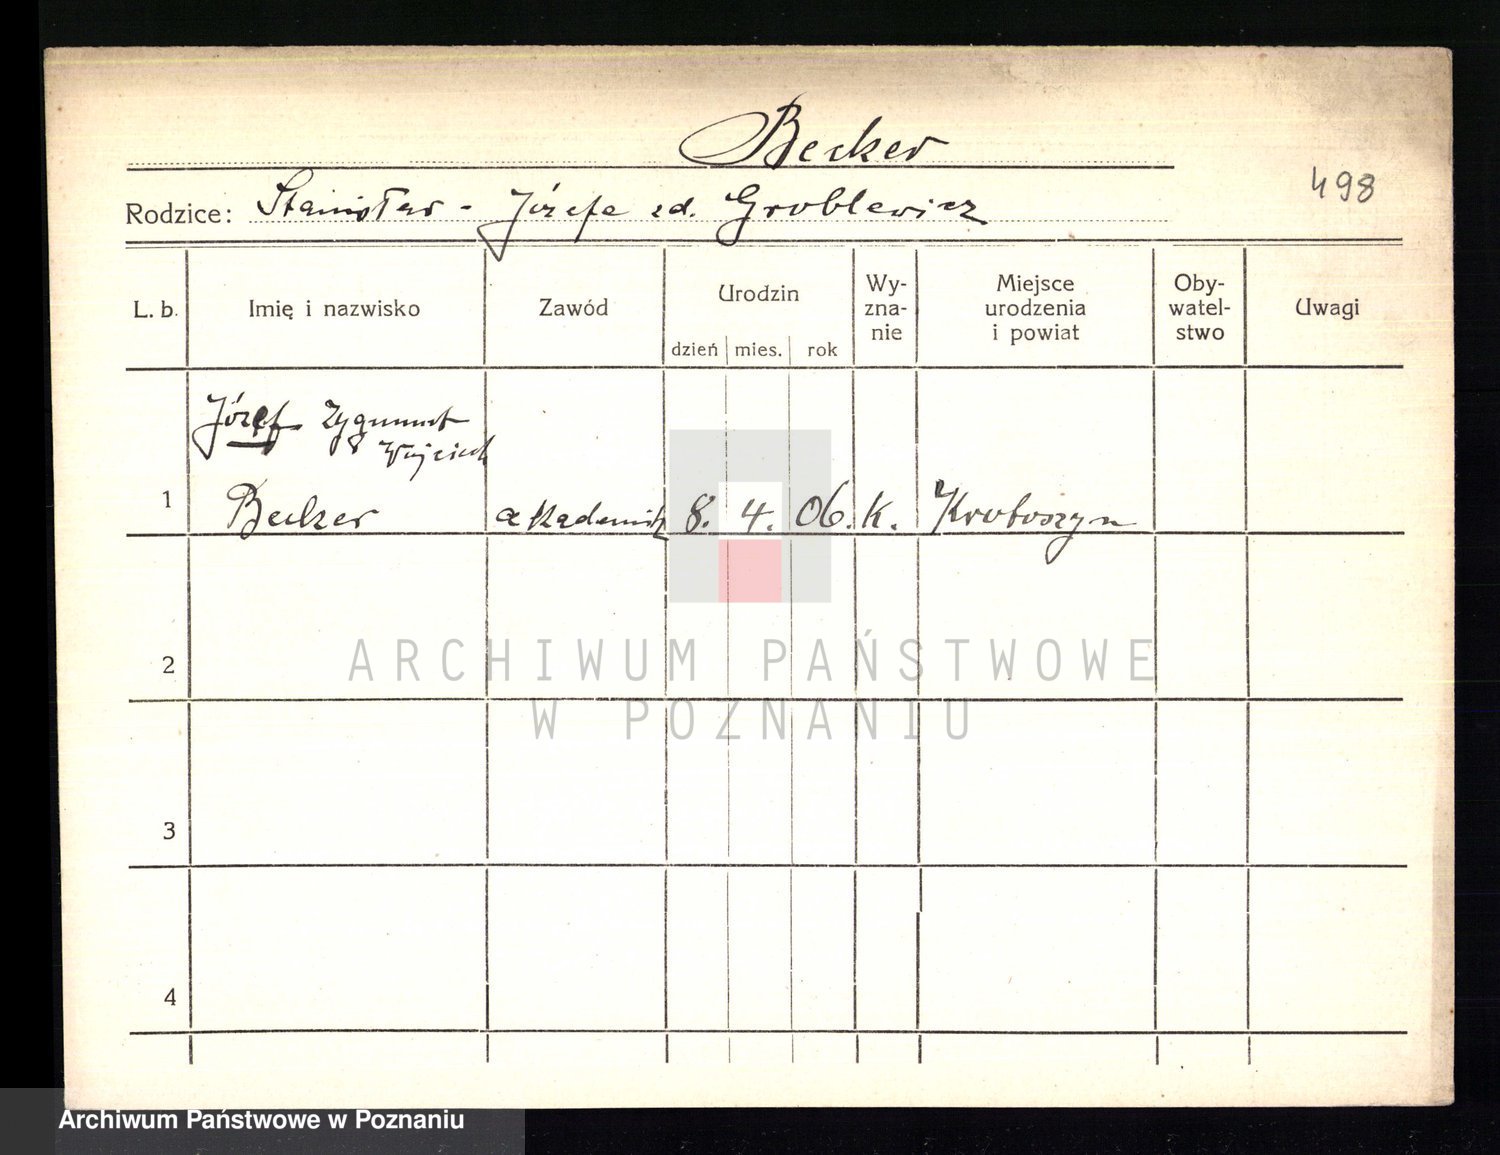 Becker
498
Rodzice: Stanisław - Józefa zd. Groblewicz
L. b. Imię i nazwisko Zawód Urodzin dzień mies. rok Wy-zna-nie Miejsce urodzenia i powiat Oby-watel-stwo Uwagi
Józef Zygmunt
Wojciech
1 Becker akademik 8. 4. 06. k. Krotoszyn
2
3
4
ARCHIWUM PAŃSTWOWE
W POZNANIU
Archiwum Państwowe w Poznaniu